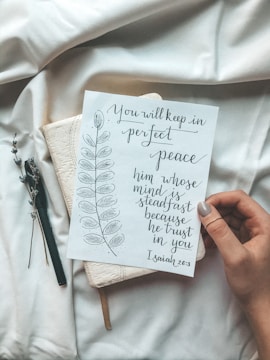 You will keep in
perfect
peace
him whose
mind is
steadfast
because
he trust
in you
Isaiah 26:3